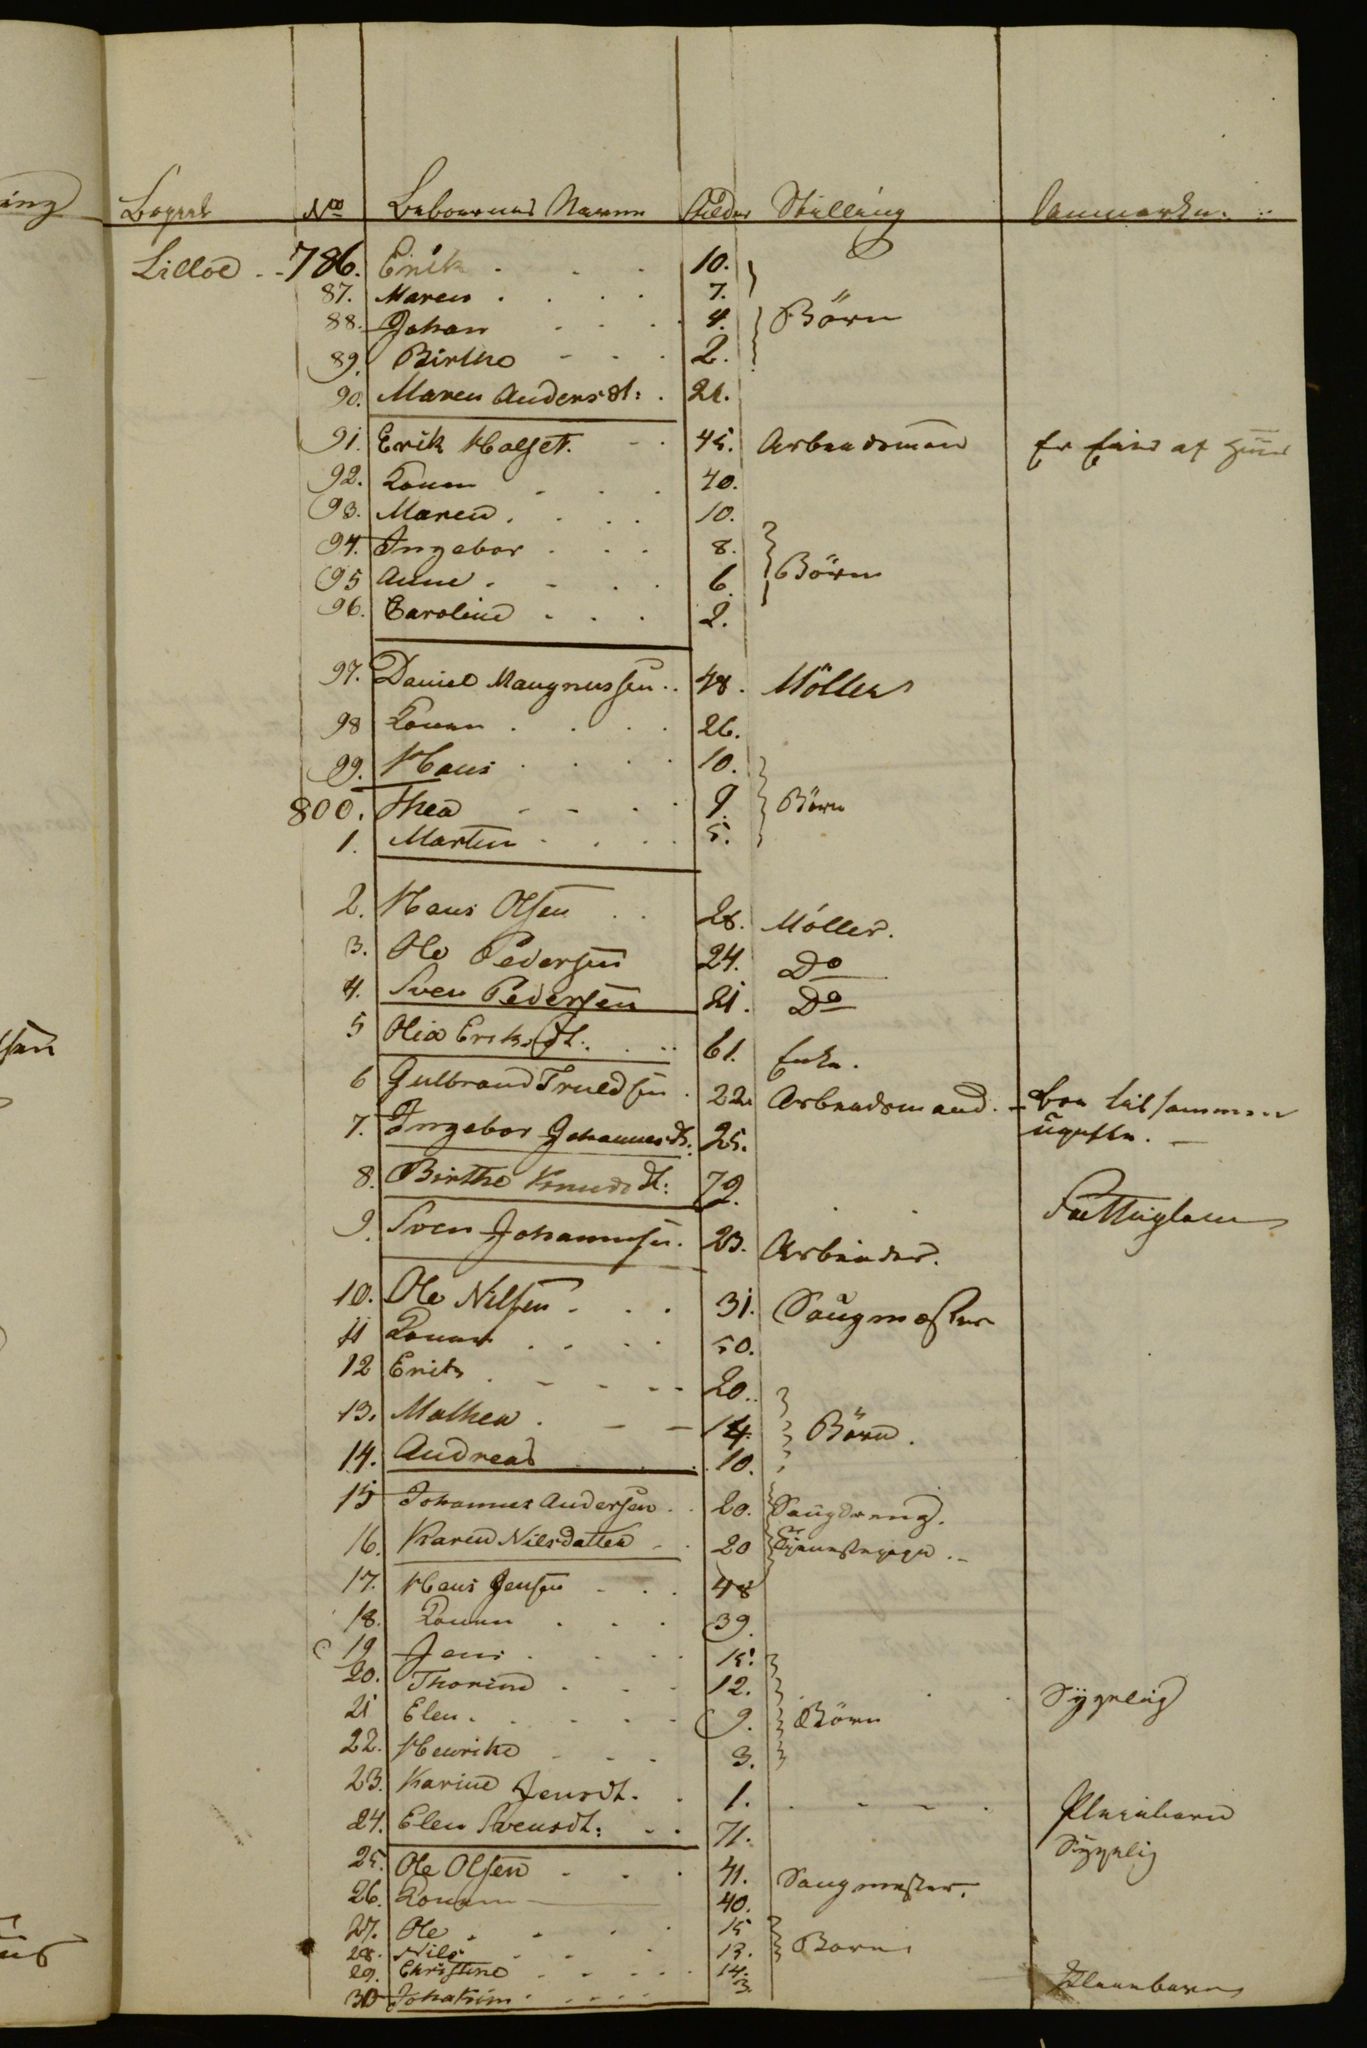 Bopæl No Beboernes Navne Alder Stilling Anmærkn.
Lilloe 786. Erik 10.
87. Maren 7.
88. Johan 4. Börn
89. Birthe 2.
90. Maren Andersdt: 21.
91. Erik Holset. 45. Arbeidsmand Er Eier af Huus
92. Konen 40.
93. Maren 10.
94. Ingebor 8.
95 Anne 6. Börn
96. Caroline 2.
97. Daniel Maugnussen 48. Möller
98 Konen 26.
99. Hans 10.
800. Thea 9. Börn
1. Martin 5.
2. Hans Olsen 28. Möller.
3. Ole Pedersen 24. Do
4. Sven Pedersen 21. Do
5 Olia Eriksdt. 61. Enke.
6 Gulbrand Truldsen 22. Arbeidsmand. Boe tilsammen
7. Ingebor Johannesdt. 25. ugifte.
8. Birthe Knudsdt: 79. Fattiglem
9. Sven Johannesen. 23. Arbeider.
10. Ole Nilsen 31. Saugmester
11 Konen 50.
12 Erik 20.
13. Mathea 14. Börn.
14. Andreas 10.
15 Johannes Andersen 20. Saugdreng.
16. Karen Nilsdatter 20 Tjenestepige.
17. Hans Jensen 48
18. Konen 39.
19 Jens 15.
20. Thorine 12. Sygelig
21 Elen 9. Börn
22. Henrike 3.
23. Karine Jensdt. 1. Pleiebarn
24. Elen Svensdt: 71. Sygelig
25. Ole Olsen 41. Saugmester.
26. Konen 40.
27. Ole 15
28. Nils 13. Börn
29. Christine 14.
30 Johakim 3. Pleiebarn